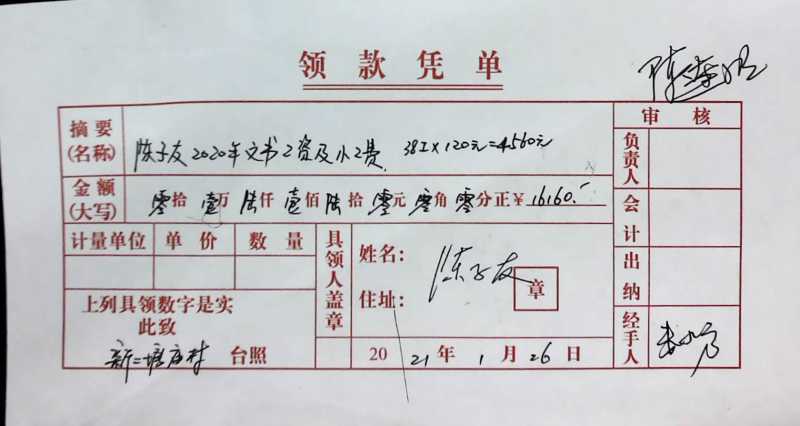 领款凭单
审核
摘要
(名称)
陈子友2020年文书工资及小工费. 38工×120元=4560元
负责人
金额
(大写)
零拾壹万陆仟壹佰陆拾零元零角零分正￥16160.-
会计
计量单位 单价 数量
具领人盖章
姓名: 陈子友
住址:
章
出纳
上列具领数字是实
此致
台照
经手人
2021年1月26日